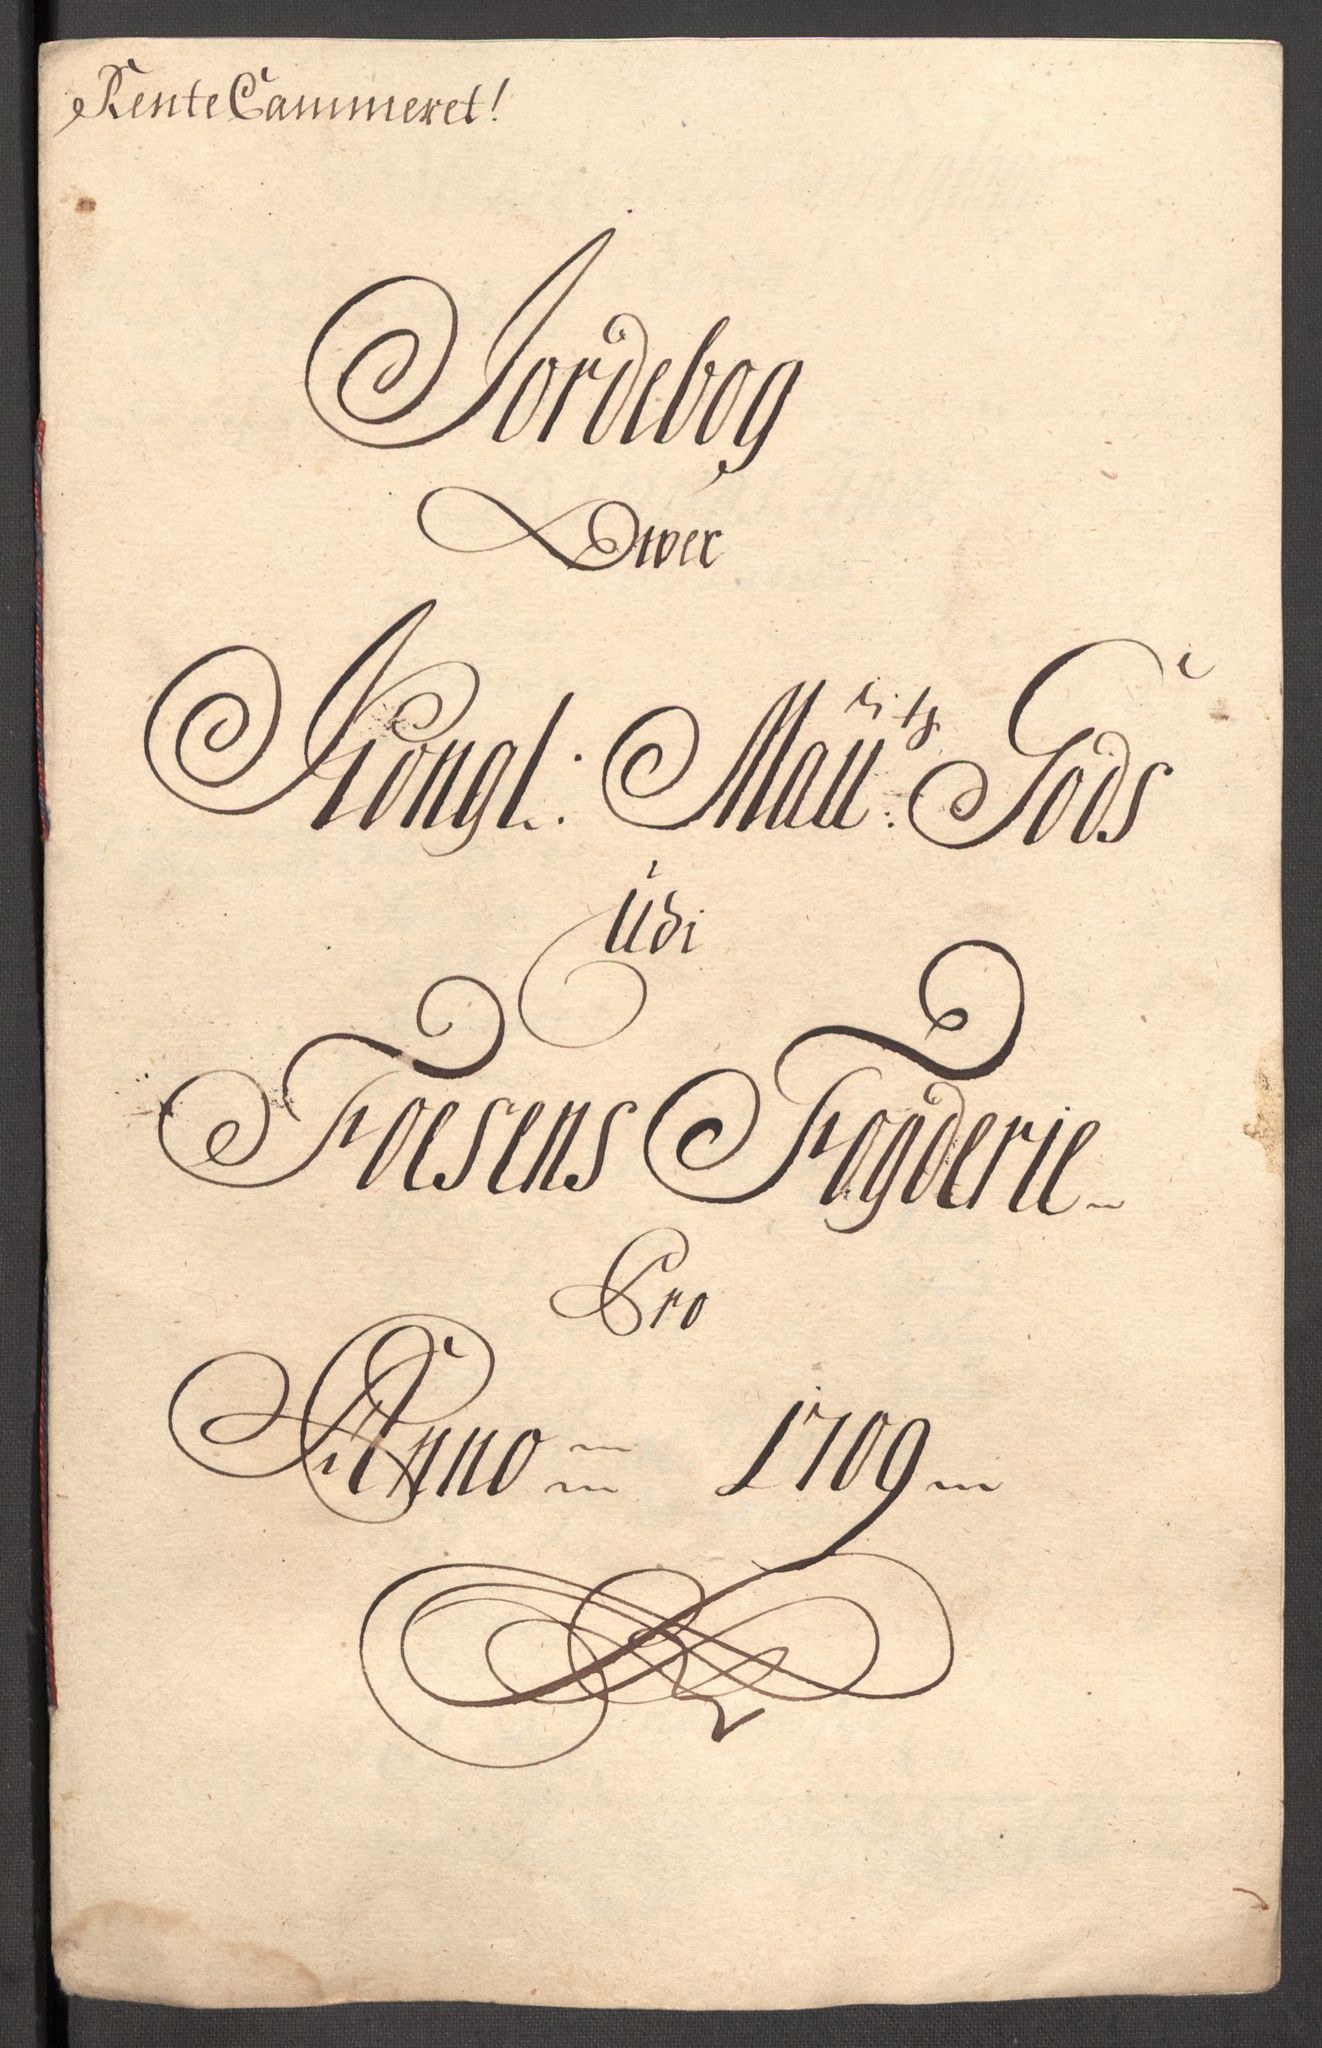 RenteCammeret!
Jordebog
Ower
Kongl: Maÿ:ᵗˢ Gods
Udi
Foesens Fogderie
Pro
Anno 1709